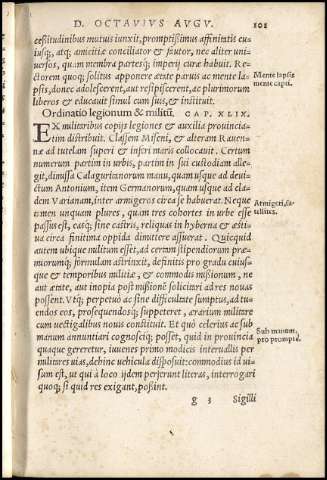 D. OCTAVIVS AVGV. 101
ceßitudinibus mutuis iunxit, promptißimus affinitatis cu
iusq́;, atq; amicitiæ conciliator & fautor, nec aliter uni-
uersos, quàm membra partesq́; imperij curæ habuit. Re-
ctorem quoq; solitus apponere ætate paruis ac mente la-
psis, donec adolescerent, aut resipiscerent, ac plurimorum
liberos & educauit simul cum suis, & instituit.
Mente lapsis
mente capti.
Ordinatio legionum & militū. CAP. XLIX.
EX militaribus copijs legiones & auxilia prouincia-
tim distribuit. Classem Miseni, & alteram Rauen-
næ ad tutelam superi & inferi maris collocauit. Certum
numerum partim in urbis, partim in sui custodiam alle-
git, dimissa Calaguritanorum manu, quam usque ad deui-
ctum Antonium, item Germanorum, quam usque ad cla-
dem Varianam, inter armigeros circa se habuerat. Neque
tamen unquam plures, quàm tres cohortes in urbe esse
passus est, easq́; sine castris, reliquas in hyberna & æsti-
ua circa finitima oppida dimittere assuerat. Quicquid
autem ubique militum esset, ad certam stipendiorum præ-
miorumq́; formulam astrinxit, definitis pro gradu cuius-
que & temporibus militiæ, & commodis mißionum, ne
aut ætate, aut inopia post mißionē solicitari ad res nouas
possent. Vtq́; perpetuò ac sine difficultate sumptus, ad tu-
endos eos, prosequendosq́; suppeteret, ærarium militare
cum uectigalibus nouis constituit. Et quò celerius ac sub
manum annuntiari cognosciq́; posset, quid in prouincia
quaque gereretur, iuuenes primò modicis interuallis per
militares uias, dehinc uehicula disposuit: commodius id ui-
sum est, ut qui à loco ijdem perferunt literas, interrogari
quoq; si quid res exigant, poßint.
Armigeri, sa-
tellites.
Sub manum,
pro promptè.
g 3 Sigilli